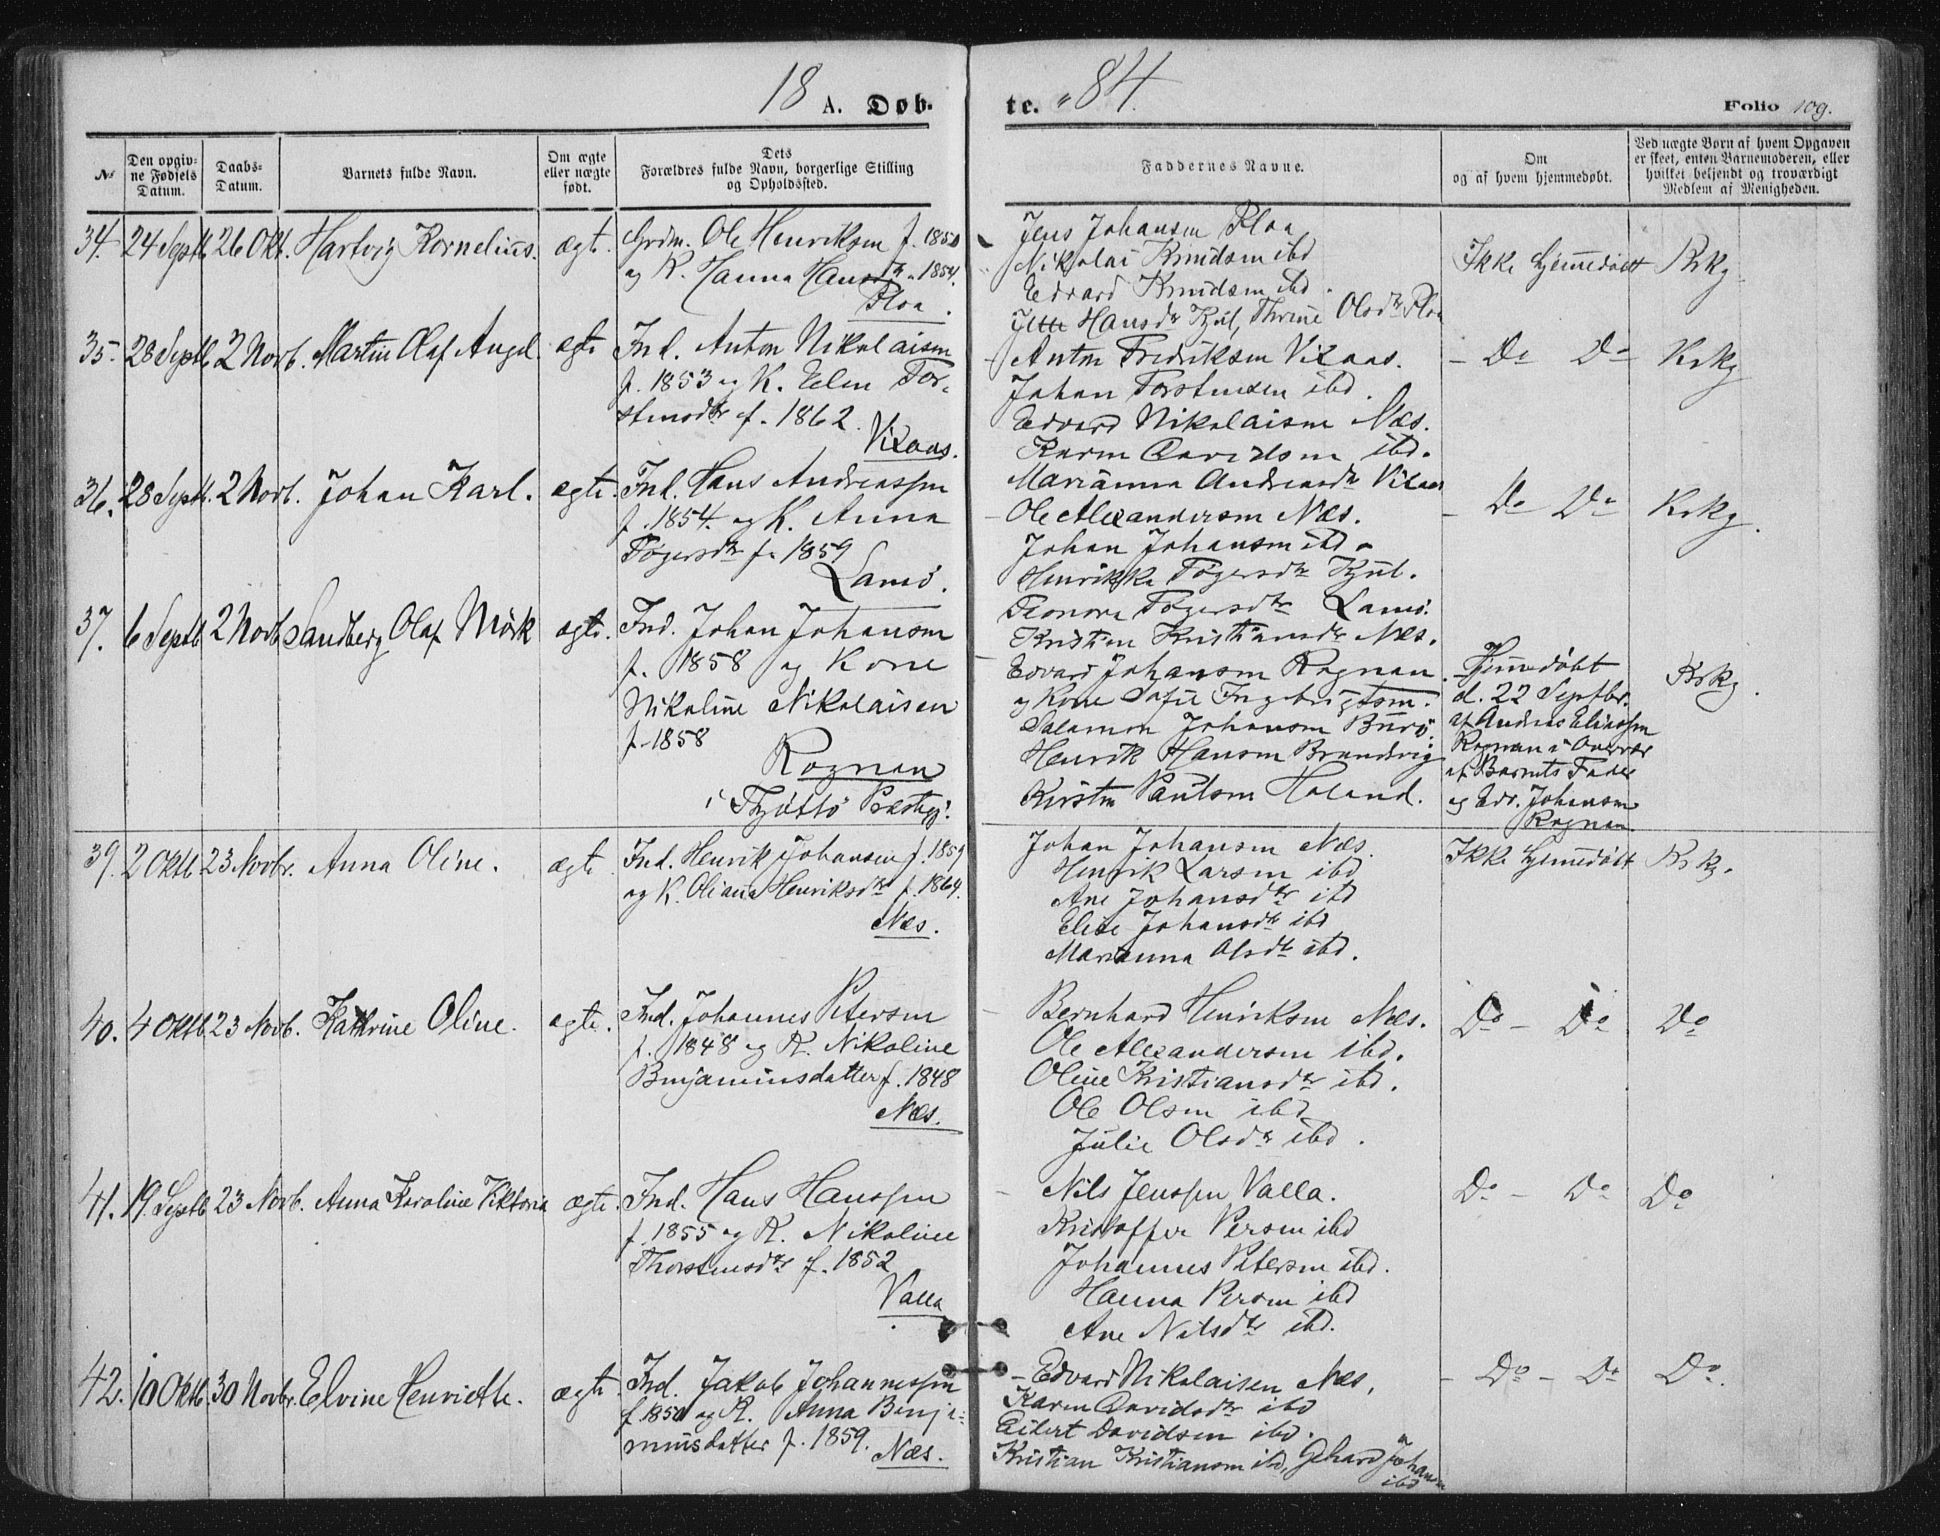 18 A. Døb-
te. 84.
Folio 109.
№
Den opgiv-
ne Fødsels
Datum.
Daabs-
Datum.
Barnets fulde Navn.
Om ægte
eller nægte
født.
Dets
Forældres fulde Navn, borgerlige Stilling
og Opholdssted.
Faddernes Navne.
Om
og af hvem hjemmedøbt.
Ved uægte Børn af hvem Opgaven
er skeet, enten Barnemoderen, eller
hvilket bekjendt og troværdigt
Medlem af Menigheden.
34. 24 Septb 26 Okt. Hartvig Kornelius. ægt.
Grdm. Ole Henriksen f. 1850
og K. Hanna Hansdtr 1854.
Floa.
Jens Johansen Floa
Nikolai Knudsen ibd
Edvard Knudsen ibd.
Jette Hansdtr Kjul, Thrine Olsdtr Floa
Ikke hjemmedøbt
Krkg
35. 28 Septb 2 Novb. Martin Olaf Angel. ægte
Ind. Anton Nikolaisen
f. 1853 og K. Elen Tor-
stensdtr f. 1862.
Vikaas.
Anton Fredriksen Vikaas.
Johan Torstensen ibd.
Edvard Nikolaisen Næs.
Karen Davidsen ibd.
Marianna Andreasdtr Vikaas
Do Do
Krkg
36. 28 Septb. 2 Novb. Johan Karl. ægte.
Ind. Hans Andreassen
f. 1854. og K. Anna
Tøgersdtr f. 1859
Lamø.
Ole Alexandersen Næs.
Johan Johansen ibd.
Henrikke Tøgersdtr Kjul.
Leonora Tøgersdtr Lamø.
Kristien Kristiansdtr Næs.
Do Do
Krkg.
37. 6 Septb 2 Novb Sandberg Olaf Mörk ægte.
Ind. Johan Johansen
f. 1858 og Kone
Nikoline Nikolaisen
f. 1858
Rognan
i Thjøttø Præstegj.
Edvard Johansen Rognan
og Kone Sofie Ingebrigtsen.
Salamon Johansen Burø.
Henrik Hansen Brandvig
Kirsten Paulsen Holand.
Hjemmedøbt
d. 22 Septbr.
af Andreas Eliassen
Rognan i Overvær
af Barnets Fader
og Edv. Johansen
Rognan
Krkg.
39. 2 Oktb 23 Novbr. Anna Oline. ægte
Ind. Henrik Johansen f. 1859
og K. Oliana Henriksdtr f. 1864.
Næs.
Johan Johansen Næs.
Henrik Larsen ibd
Ane Johansdtr ibd
Elise Johansdtr ibd
Marianna Olsdtr ibd.
Ikke hjemmedøbt
Krkg.
40. 4 Oktb 23 Novb. Kathrine Oline. ægte.
Ind. Johannes Petersen
f. 1848 og K. Nikoline
Benjaminsdatter f. 1848
Næs.
Bernhard Henriksen Næs.
Ole Alexandersen ibd.
Oline Kristiansdtr ibd.
Ole Olsen ibd
Julie Olsdtr ibd.
Do - Do
Do
41. 19. Septb 23 Novb. Anna Karoline Viktoria ægte.
Ind. Hans Hanssen
f. 1855 og K. Nikoline
Thorstensdtr f. 1852
Valla.
Nils Jenssen Valla.
Kristoffer Persen ibd
Johannes Petersen ibd.
Hanna Persen ibd
Ane Nilsdtr ibd.
Do - Do
Do
42. 10 Oktb. 30 Novbr. Elvine Henriette. ægte.
Ind. Jakob Johannessen
f. 1850 og K. Anna Benja-
minsdatter f. 1859. Næs.
Edvard Nikolaisen Næs,
Karen Davidsdtr ibd
Eilert Davidsen ibd.
Kristian Kristiansen ibd, Gehard Johansen
ibd
Do - Do
Do.